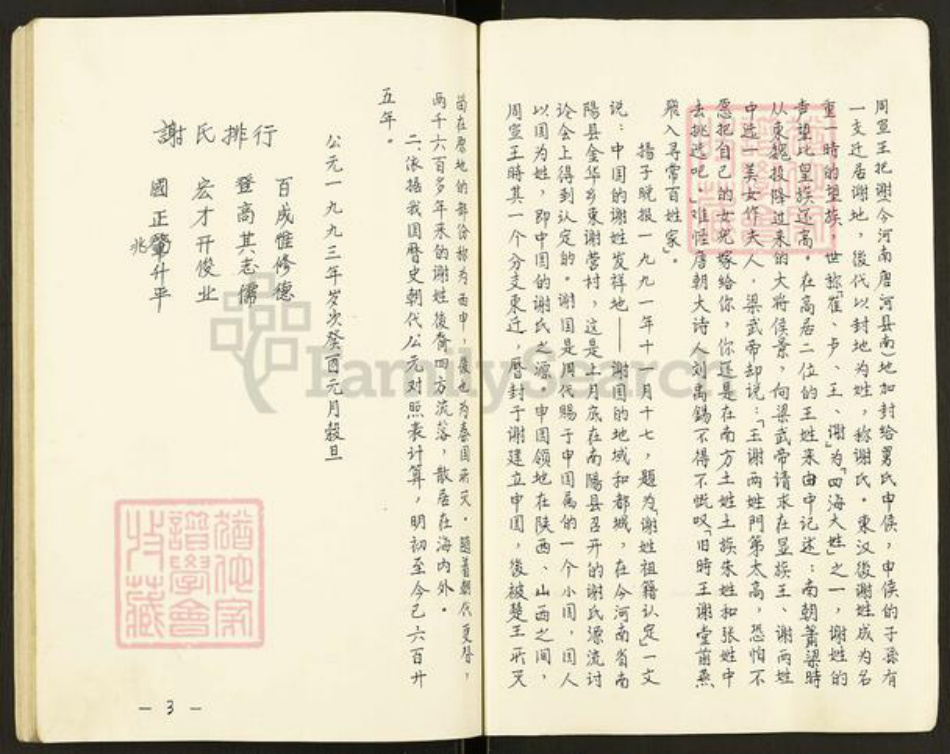 周宣王把谢(今河南唐河县南)地加封给舅氏申侯，申侯的子孫有
一支迁居谢地，後代以封地为姓，称谢氏。東汉後谢姓成为名
重一時的望族，世称「崔、卢、王、谢」为「四海大姓」之一，谢姓的
声望比皇族还高。在高居二位的王姓来由中记述：南朝萧梁時
从東魏投降过来的大将侯景，向梁武帝请求在显族王、谢两姓
中选一美女作夫人，梁武帝却说：「王谢两姓門第太高，恐怕不
愿把自己的女兒嫁给你，你还是在南方土姓土族朱姓和张姓中
去挑选吧。」难怪唐朝大诗人刘禹錫不得不慨叹「旧時王谢堂前燕
飛入寻常百姓家」。
揚子晚报一九九一年十一月十七，题为「谢姓祖籍认定」一文
说：中国的谢姓发祥地——谢国的地域和都城，在今河南省南
陽县金华乡東谢营村，这是上月底在南陽县召开的谢氏源流讨
论会上得到认定的。谢国是周代赐于申国属的一个小国，国人
以国为姓，即中国的谢氏之源。申国领地在陕西、山西之间，
周宣王時其一个分支東迁，曆封于谢建立申国，後被楚王所灭
留在原地的部份称为西申，後也为秦国所灭。随着朝代更替，
两千六百多年来的谢姓後裔四方流落，散居在海内外。
二、依据我国曆史朝代公元对照表计算，明初至今已六百廿
五年。
公元一九九三年岁次癸酉元月穀旦
謝氏排行
百成惟修德
登高其志儒
宏才开俊业
國正肇升平
兆
猶他家
譜學會
收藏
猶他家
譜學會
收藏
FamilySearch
— 3 —